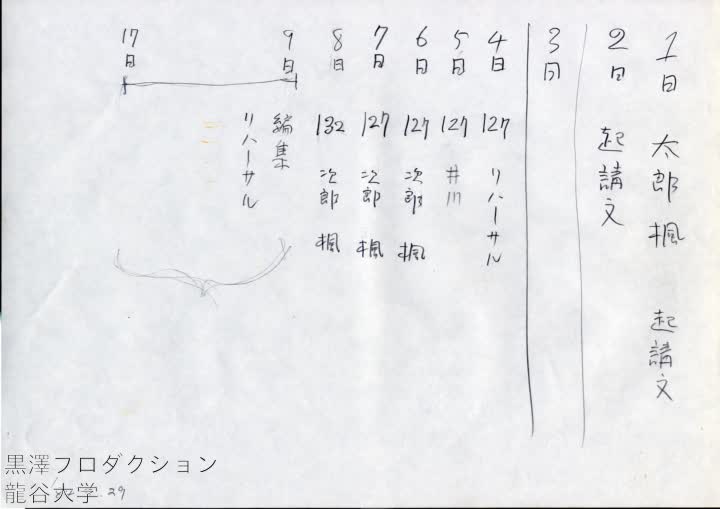 1日 太郎 楓 起請文
2日 起請文
3日
4日 127 リハーサル
5日 127 井川
6日 127 次郎 楓
7日 127 次郎 楓
8日 132 次郎 楓
9日 編集
リハーサル
17日
黒澤フロダクション
龍谷大学
29